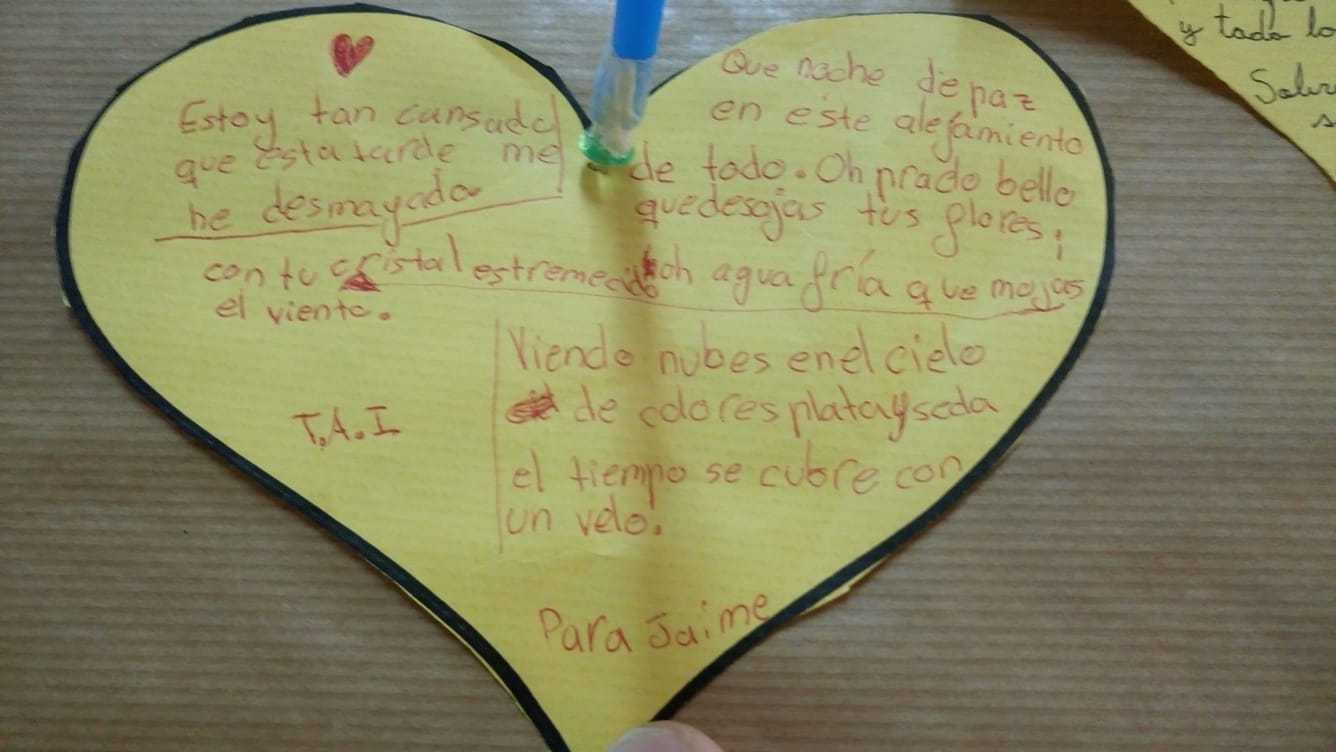 Estoy tan cansado
que esta tarde me
he desmayado.
Que noche de paz
en este alejamiento
de todo. Oh prado bello
que desojas tus flores;
oh agua fría que mojas
con tu cristal estremecido
el viento.
Viendo nubes en el cielo
de colores plata y seda
el tiempo se cubre con
un velo.
T.A.I
Para Jaime
y todo lo